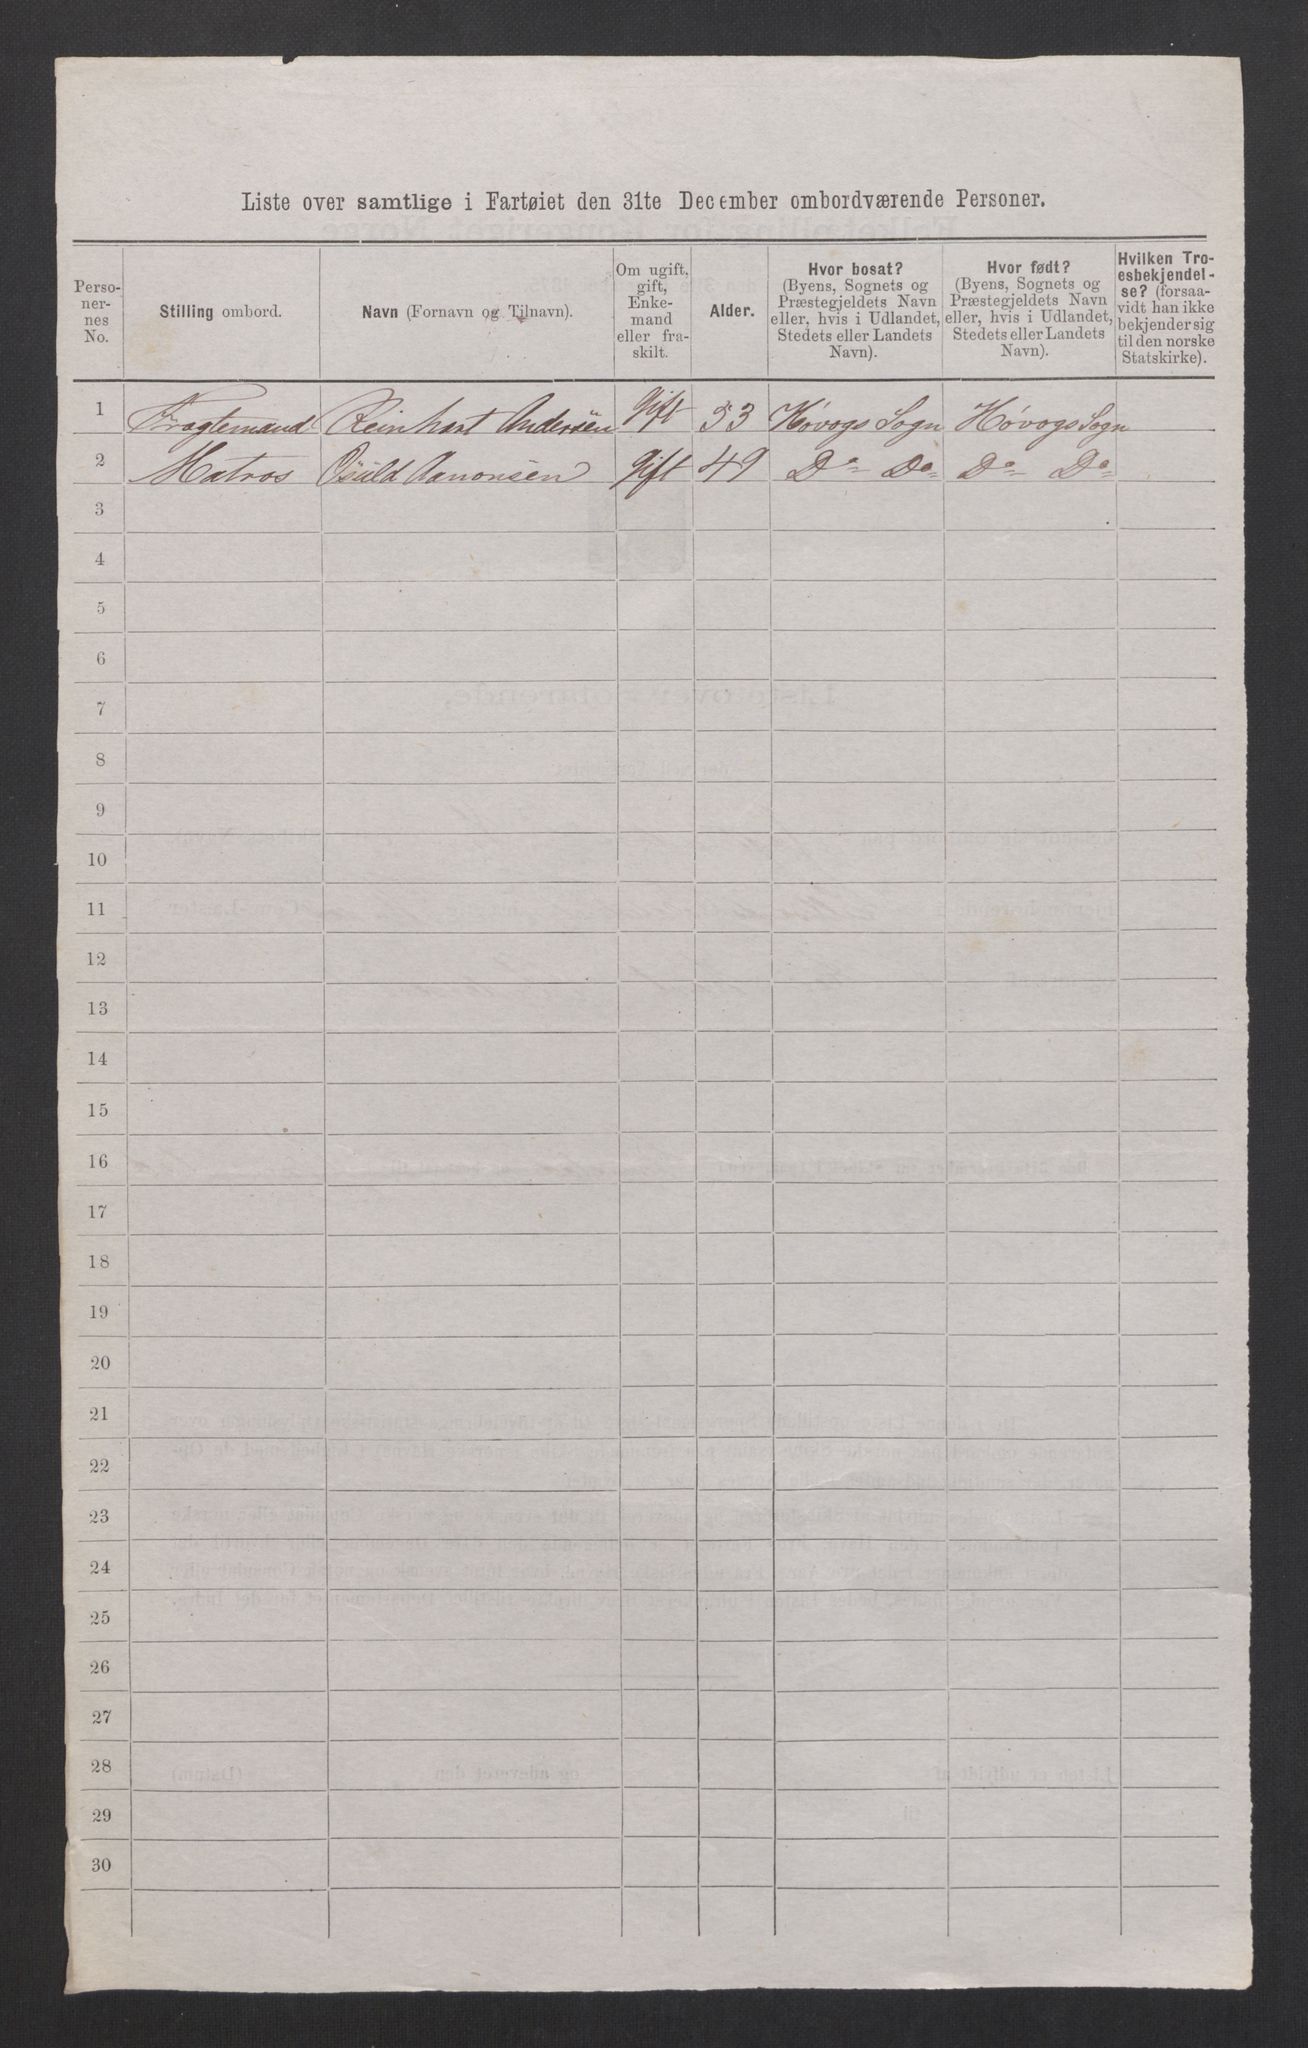 Liste over samtlige i Fartøiet den 31te December ombordværende Personer.
Perso-
ner-
nes
No.
Stilling ombord.
Navn (Fornavn og Tilnavn).
Om ugift,
gift,
Enke-
mand
eller fra-
skilt.
Alder.
Hvor bosat?
(Byens, Sognets og
Præstegjeldets Navn
eller, hvis i Udlandet,
Stedets eller Landets
Navn).
Hvor født?
(Byens, Sognets og
Præstegjeldets Navn
eller, hvis i Udlandet,
Stedets eller Landets
Navn).
Hvilken Tro-
esbekjendel-
se? (forsaa-
vidt han ikke
bekjender sig
til den norske
Statskirke).
1 Fragtemand Reinhart Andersen gift 53 Høvogs Sogn Høvogs Sogn
2 Matros Osuld Aanonsen gift 49 Do Do Do Do
3
4
5
6
7
8
9
10
11
12
13
14
15
16
17
18
19
20
21
22
23
24
25
26
27
28
29
30